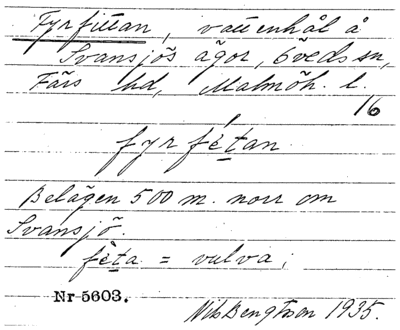 Fyrfittan, vattenhål å
Svansjös ägor, Öveds sn,
Färs hd, Malmöh. l.
16
fyrfétan
Belägen 500 m. norr om
Svansjö.
fèta = vulva;
Nr 5603.
Nils Bengtson 1935.